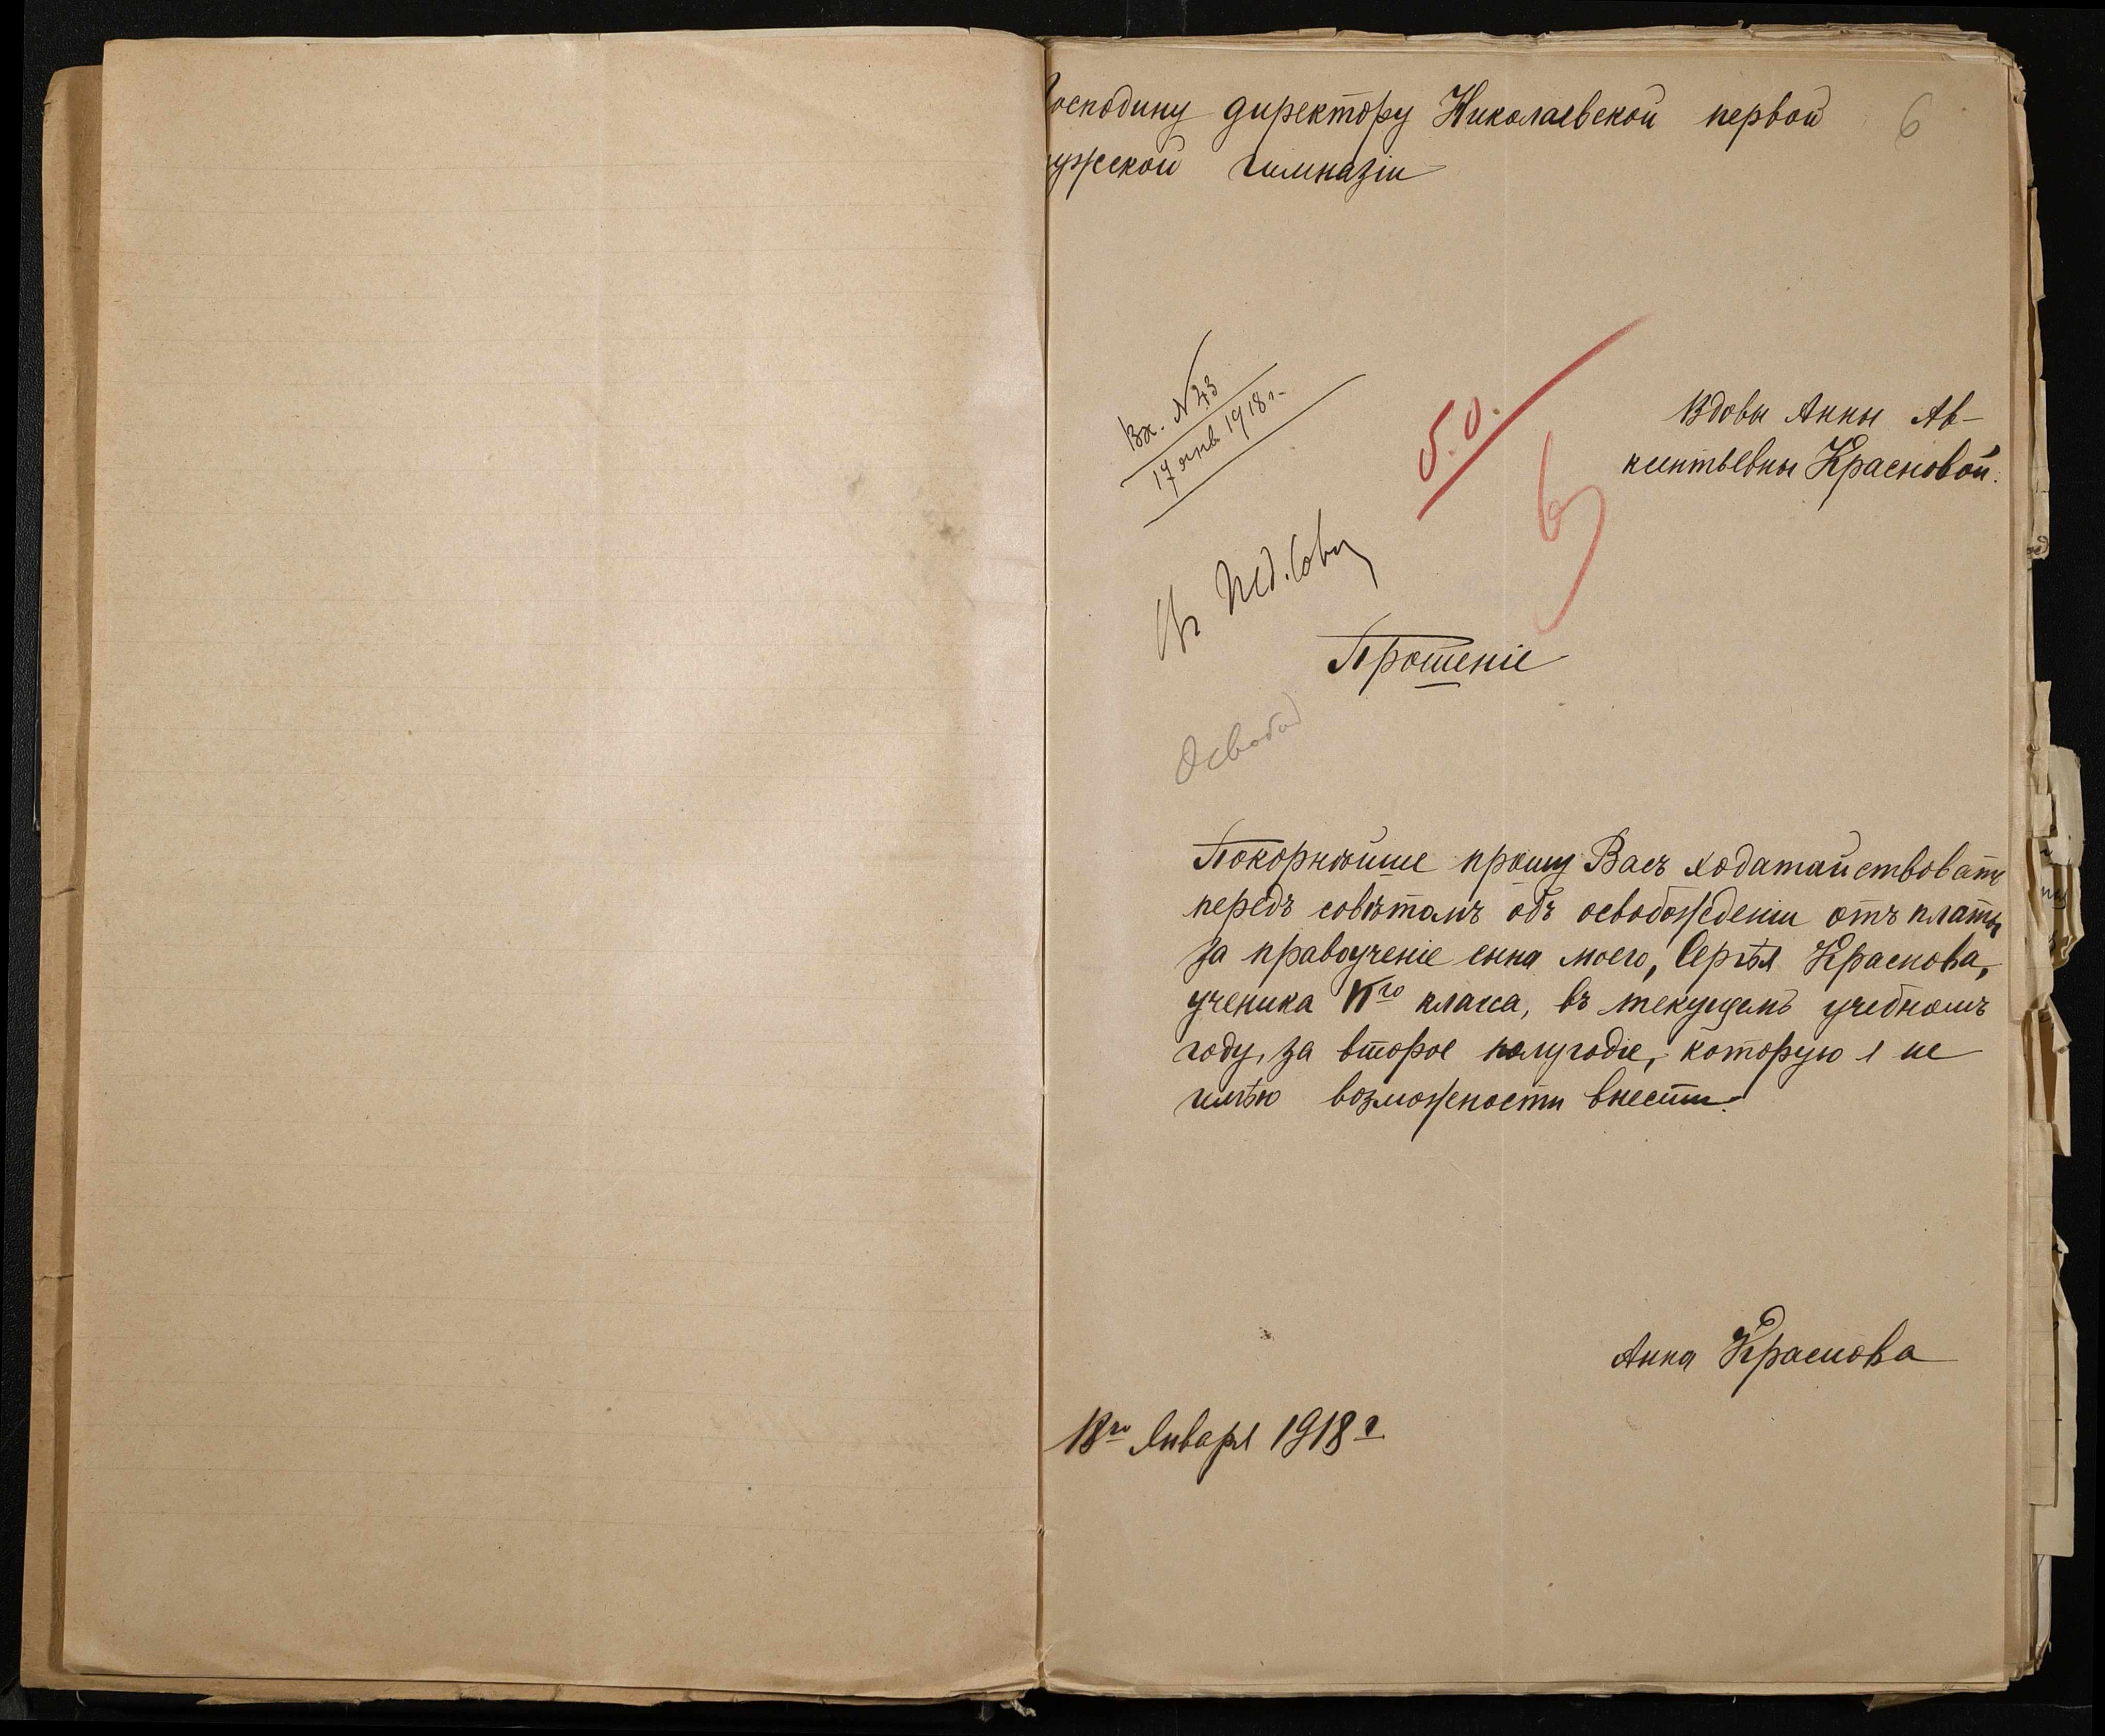 осподину директору Николаевской первой
6
ужской гимназіи
Вх. N 43
17 янв 1918 г.
5.0.
Вдовы Анны Ав-
ксентьевны Красновой.
6
Въ Пед. Совѣ
Прошеніе
Освобод
Покорнѣйше прошу Васъ ходатайствовать
передъ совѣтомъ объ освобожденіи отъ платы
за правоученіе сына моего, Сергѣя Краснова,
ученика го класса, въ текущемъ учебномъ
году, за второе полугодіе, которую я не
имѣю возможности внести.
Анна Краснова
18го Января 1918 г.